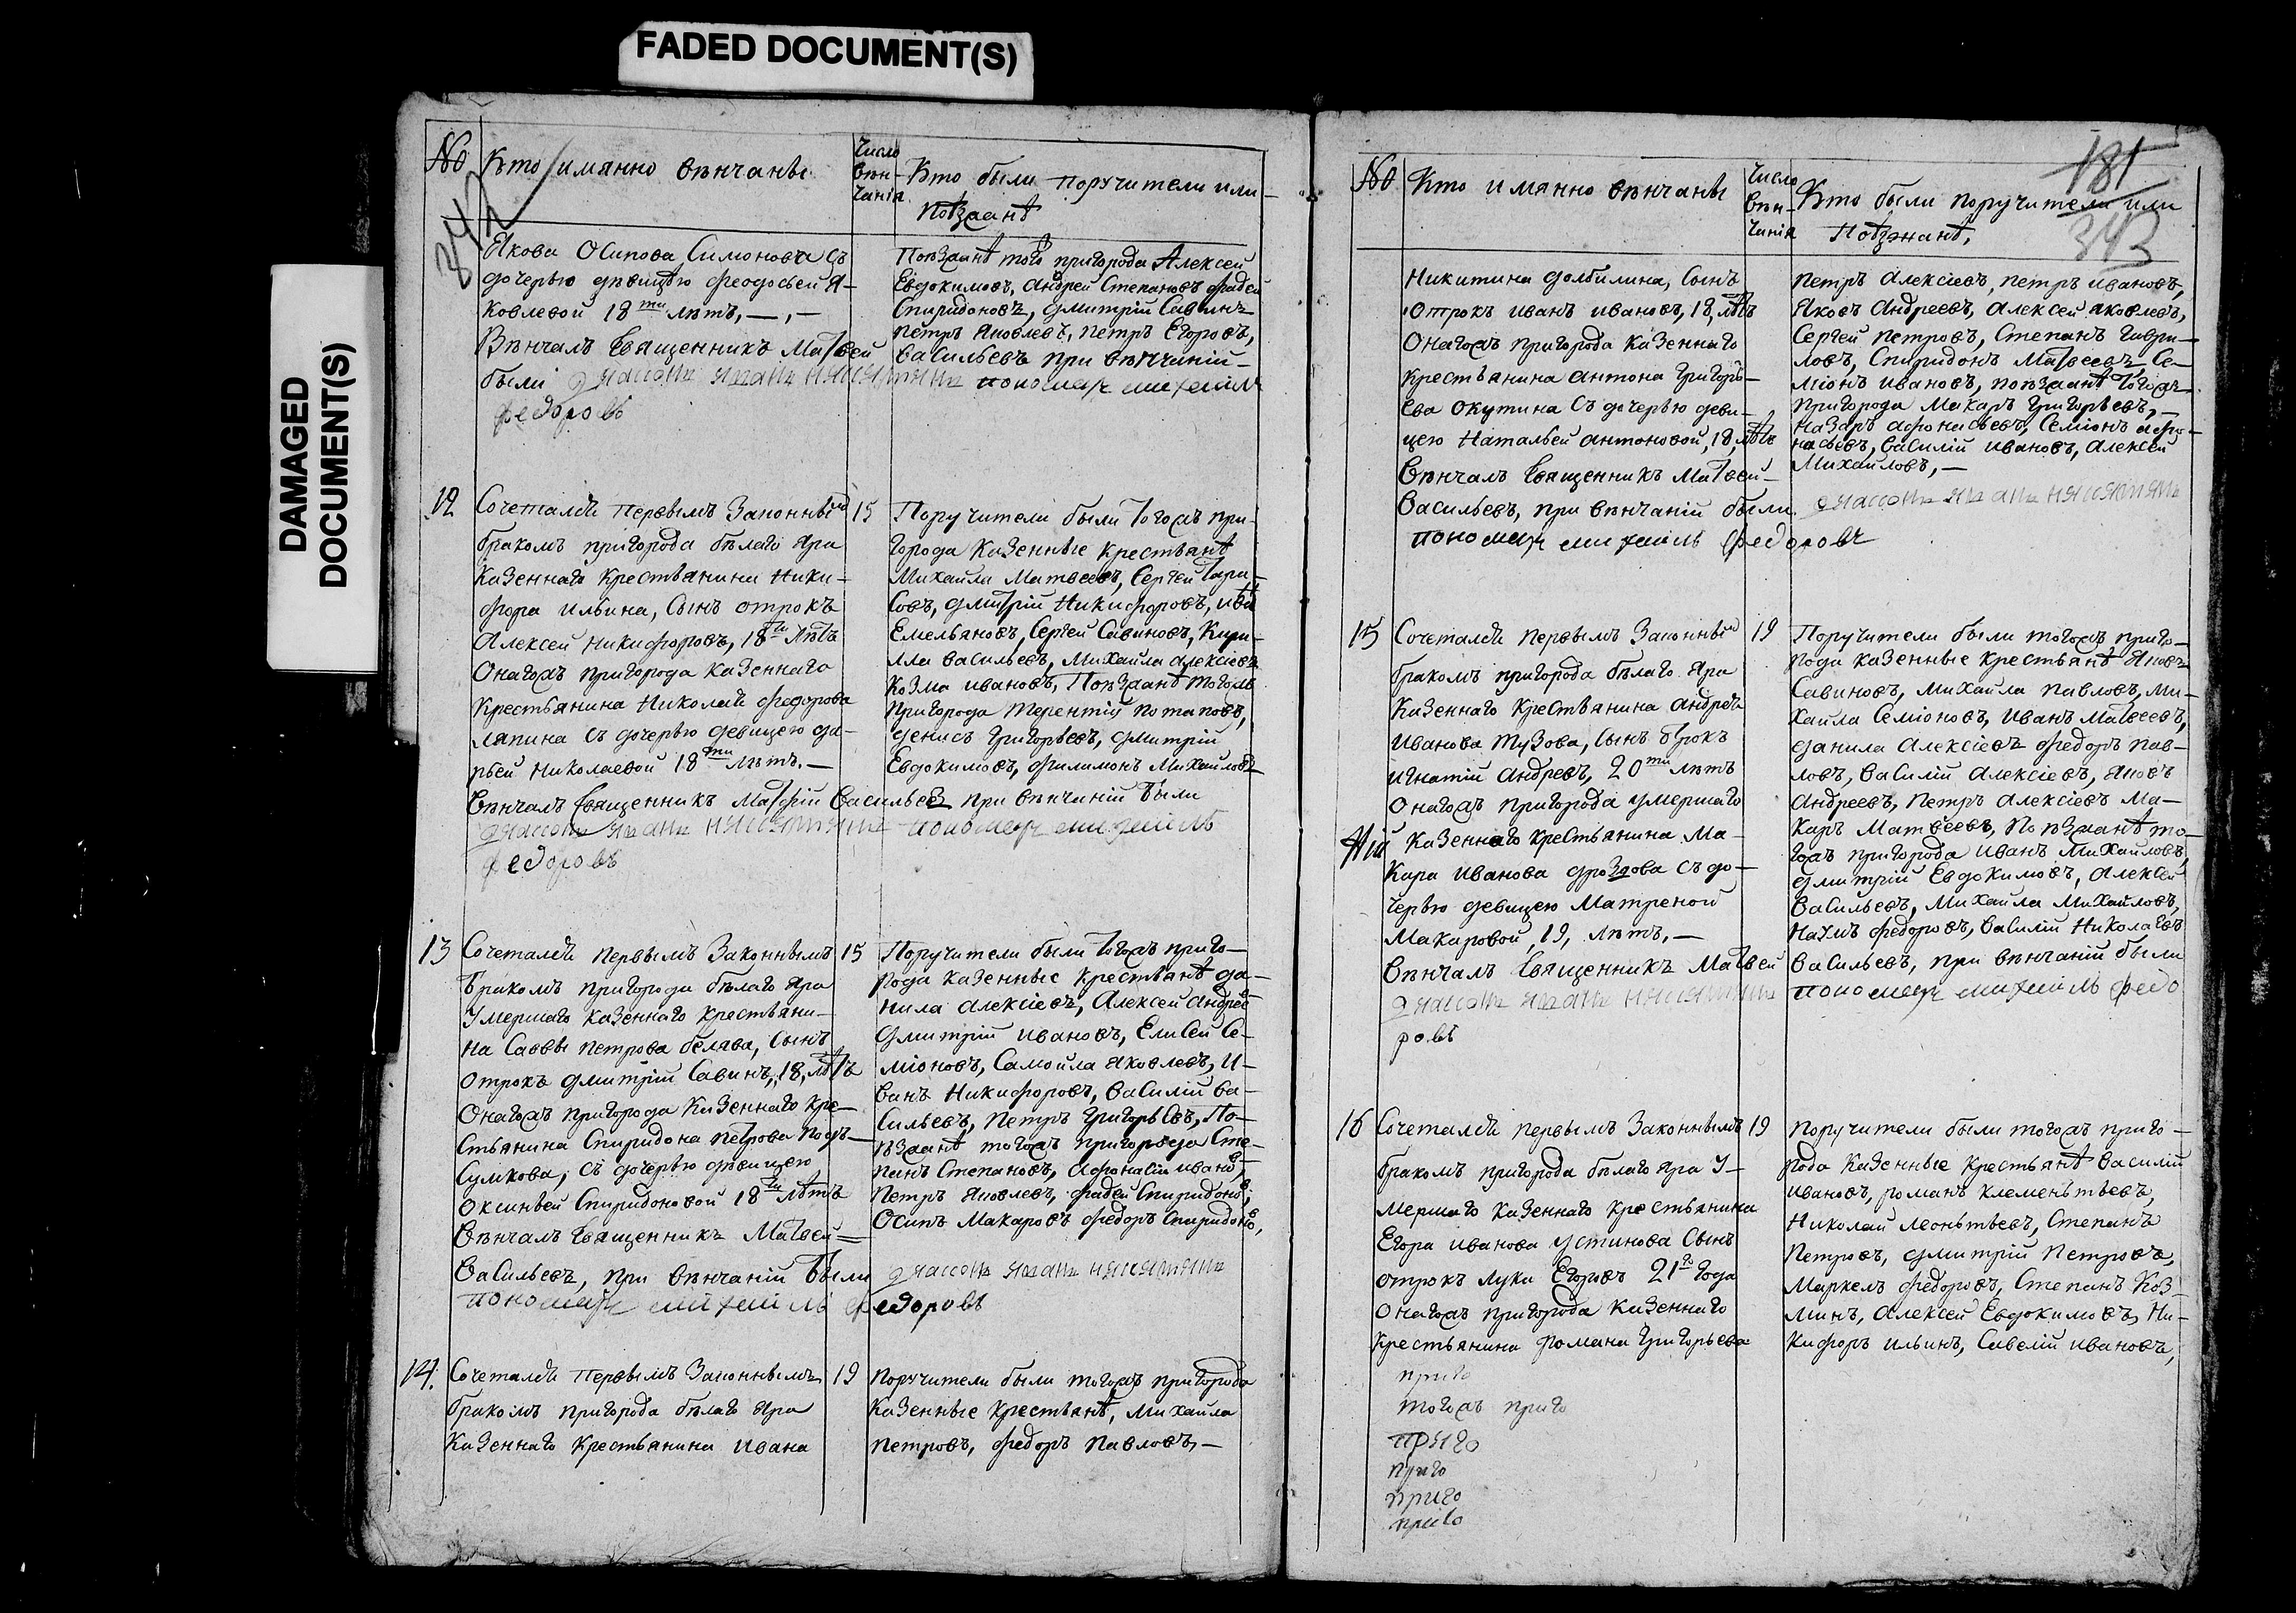 FADED DOCUMENT(S)
DAMAGED
DOCUMENT(S)
№ Кто имянно вѣнчаны
Число
вѣн-
чанія
Кто были поручители или
поѣзжанѣ
342
Якова Осипова Симонова съ
дочерью дѣвицѣю Феодосьей Я-
ковлевой 18ти лѣтъ, — , —
Вѣнчалъ Священникъ Матвей
были
Федоровъ
Поѣзжанѣ того пригорода Алексей
Евдокимовъ, Андрей Степановъ Фадей
Спиридоновъ, Дмитрій Савинъ
Петръ Яковлевъ, Петръ Егоровъ,
Васильевъ при вѣнчаній
пономарь Михаилъ
12 Сочетался первымъ Законнымъ 15
бракомъ пригорода бѣлаго Яра
Казеннаго Крестьянина Ники-
фора Ильина, Сынъ отрокъ
Алексей Никифоровъ, 18ти лѣтъ
Онагожъ пригорода Казеннаго
Крестьянина Николая Федорова
Ляпина съ дочерью девицею Да-
рьей Николаевой 18ти лѣтъ. —
Вѣнчалъ Священникъ Матфій Васильевъ при вѣнчаній были
пономарь Михаилъ
Федоровъ
Поручители были Тогожъ при-
города Казенные Крестьянѣ
Михайла Матвеевъ, Сергей Тари-
совъ, Дмитрій Никифоровъ, Иванъ
Емельяновъ, Сергей Савиновъ, Кири-
лла Васильевъ, Михайла Алексіевъ
Козма Ивановъ, Поѣзжанѣ тогожъ
Пригорода Терентій Потаповъ,
Денисъ Григорьевъ, Дмитрій
Евдокимовъ, Филимонъ Михайловъ
13 Сочетался первымъ Законнымъ 15
бракомъ пригорода бѣлаго Яра
Умершаго Казеннаго Крестьяни-
на Саввы Петрова Белява, Сынъ
отрокъ Дмитрій Савинъ, 18, лѣтъ
Онагожъ пригорода Казеннаго Кре-
стьянина Спиридона Петрова Подъ-
Сумкова, съ дочерью дѣвицею
Оксиньей Спиридоновой 18ти лѣтъ
Вѣнчалъ Священникъ Матвей
Васильевъ, при вѣнчаній были
пономарь Михаилъ Федоровъ
Поручители были Тогожъ приго-
рода Казенные Крестьянѣ Да-
нила Алексіевъ, Алексей Андреевъ
Дмитрій Ивановъ, Елисей Се-
міоновъ, Самойла Яковлевъ, И-
ванъ Никифоровъ, Василій Ва-
сильевъ, Петръ Григорьевъ, По-
ѣзжанѣ тогожъ пригорода Сте-
панъ Степановъ, Афонасій Ивановъ,
Петръ Яковлевъ, Фадей Спиридоновъ,
Осипъ Макаровъ Федоръ Спиридоновъ,
14. Сочетался первымъ Законнымъ 19
бракомъ пригорода бѣлаго Яра
Казеннаго Крестьянина Ивана
Поручители были тогожъ пригорода
Казенные Крестьянѣ, Михайла
Петровъ, Федоръ Павловъ, —
№ Кто имянно вѣнчаны
Число
вѣн-
чанія
Кто были поручители или
Поѣзжанѣ,
181
343
Никитина Долбилина, Сынъ
Отрокъ Иванъ Ивановъ, 18, лѣтъ
Онагожъ пригорода Казеннаго
Крестьянина Антона Григорь-
ева Окутина съ дочерью деви-
цею Натальей Антоновой, 18, лѣтъ
Вѣнчалъ Священникъ Матвей
Васильевъ, при вѣнчаній были
пономарь Михаилъ Федоровъ
Петръ Алексіевъ, Петръ Ивановъ,
Яковъ Андреевъ, Алексей Яковлевъ,
Сергей Петровъ, Степанъ Гаври-
ловъ, Спиридонъ Матвеевъ, Се-
міонъ Ивановъ, поѣзжанѣ Тогожъ
Пригорода Макаръ Григорьевъ,
Назаръ Афонасьевъ, Семіонъ Афо-
насьевъ, Василій Ивановъ, Алексей
Михайловъ, —
15 Сочетался первымъ Законнымъ 19
бракомъ пригорода бѣлаго Яра
Казеннаго Крестьянина Андрея
Иванова Тузова, Сынъ отрокъ
Игнатій Андревъ, 20ти лѣтъ
Онагожъ пригорода умершаго
Казеннаго Крестьянина Ма-
кара Иванова Дроздова съ до-
черью девицею Матреной
Макаровой, 19, лѣтъ, —
Вѣнчалъ Священникъ Матвей
ровъ
Поручители были тогожъ приго-
рода Казенные Крестьянѣ Яковъ
Савиновъ, Михайла Павловъ, Ми-
хайла Семіоновъ, Иванъ Матвеевъ,
Данила Алексіевъ Федоръ Пав-
ловъ, Василій Алексіевъ, Яковъ
Андреевъ, Петръ Алексіевъ Ма-
каръ Матвеевъ, Поѣзжанѣ то-
гожъ пригорода Иванъ Михайловъ,
Дмитрій Евдокимовъ, Алексей
Васильевъ, Михайла Михайловъ,
Наумъ Федоровъ, Василій Николаевъ
Васильевъ, при вѣнчаній были
пономарь Михаилъ Федо
16 Сочетался первымъ Законнымъ 19
бракомъ пригорода бѣлаго Яра У-
мершаго Казеннаго Крестьянина
Егора Иванова Устинова Сынъ
отрокъ Лука Егоровъ 21го года
Онагожъ пригорода Казеннаго
Крестьянина Романа Григорьева
приго
тогожъ приго
приго
приго
приго
приго
Поручители были тогожъ приго-
рода Казенные Крестьянѣ Василій
Ивановъ, Романъ Клементьевъ,
Николай Леонтьевъ, Степанъ
Петровъ, Дмитрій Петровъ,
Маркелъ Федоровъ, Степанъ Коз-
минъ, Алексей Евдокимовъ, Ни-
кифоръ Ильинъ, Савелій Ивановъ,